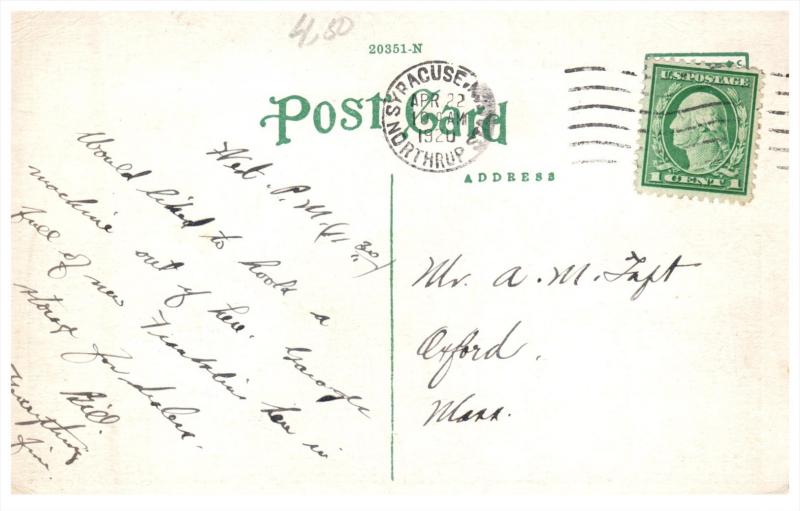 4.50
20351-N
Post Card
SYRACUSE, N.Y.
APR 22
AM
1920
NORTHRUP STA
U.S. POSTAGE
1 CENT 1
ADDRESS
Wed. P.M. (11 30)
Would liked to hook a
machine out of here. Garage
full of new Franklins here in
storage for dealers.
Bill.
Everything
fine.
Mr. A. M. Taft
Oxford,
Mass.